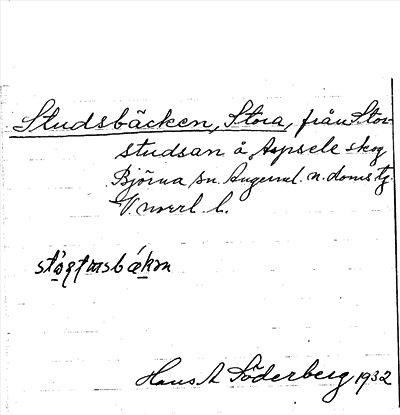 Studsbäcken, Stora, från Stor-
studsan å Aspsele skog
Björna sn. Ångerml. n. doms tg.
V norrl l.
Hans A Söderberg 1932